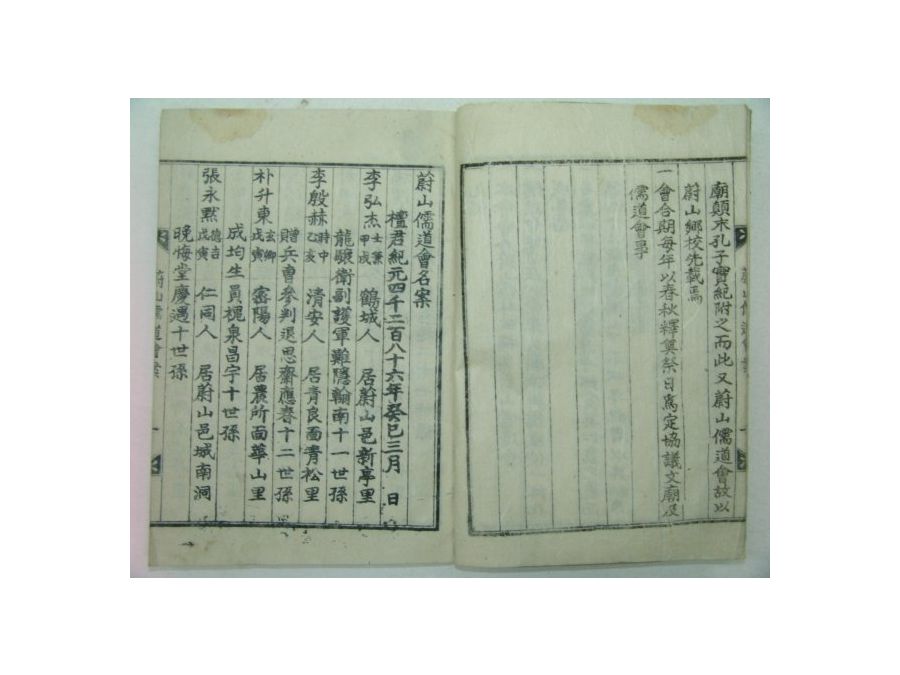 廟顛末孔子實紀附之而此又蔚山儒道會故以
蔚山鄕校先載焉
一會合期每年以春秋釋奠祭日爲定協議文廟及
儒道會事
蔚山儒道會名案
檀君紀元四千二百八十六年癸巳三月 日
李弘杰 士兼 甲戌 鶴城人 居蔚山邑新亭里
龍驤衛副護軍難隱翰南十一世孫
李殷赫 時中 乙亥 清安人 居青良面青松里
贈兵曹參判退思齋應春十二世孫
朴升東 玄卿 戊寅 密陽人 居農所面華山里
成均生員槐泉昌宇十世孫
張永黙 德吉 戊寅 仁同人 居蔚山邑城南洞
晚悔堂慶遇十世孫
蔚山儒道會案
一
蔚山儒道會案
一